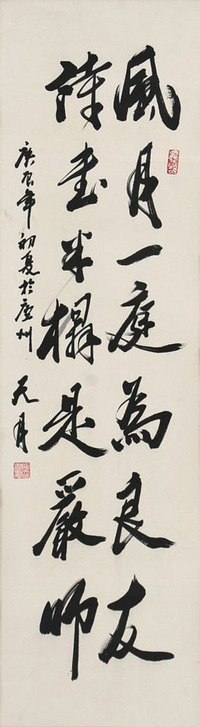 風月一庭為良友
詩書半榻是嚴師
庚寅年初夏於廬州
元月